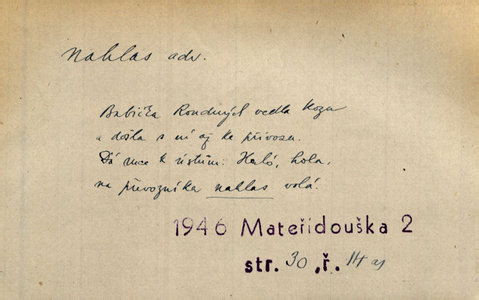 nahlas adv.
Babička Roudných vedla kozu
a došla s ní až ke přívozu.
Dá ruce k ústům: Haló, hola,
na převozníka nahlas volá.
1946 Mateřídouška 2
str. 30, ř. 14 a